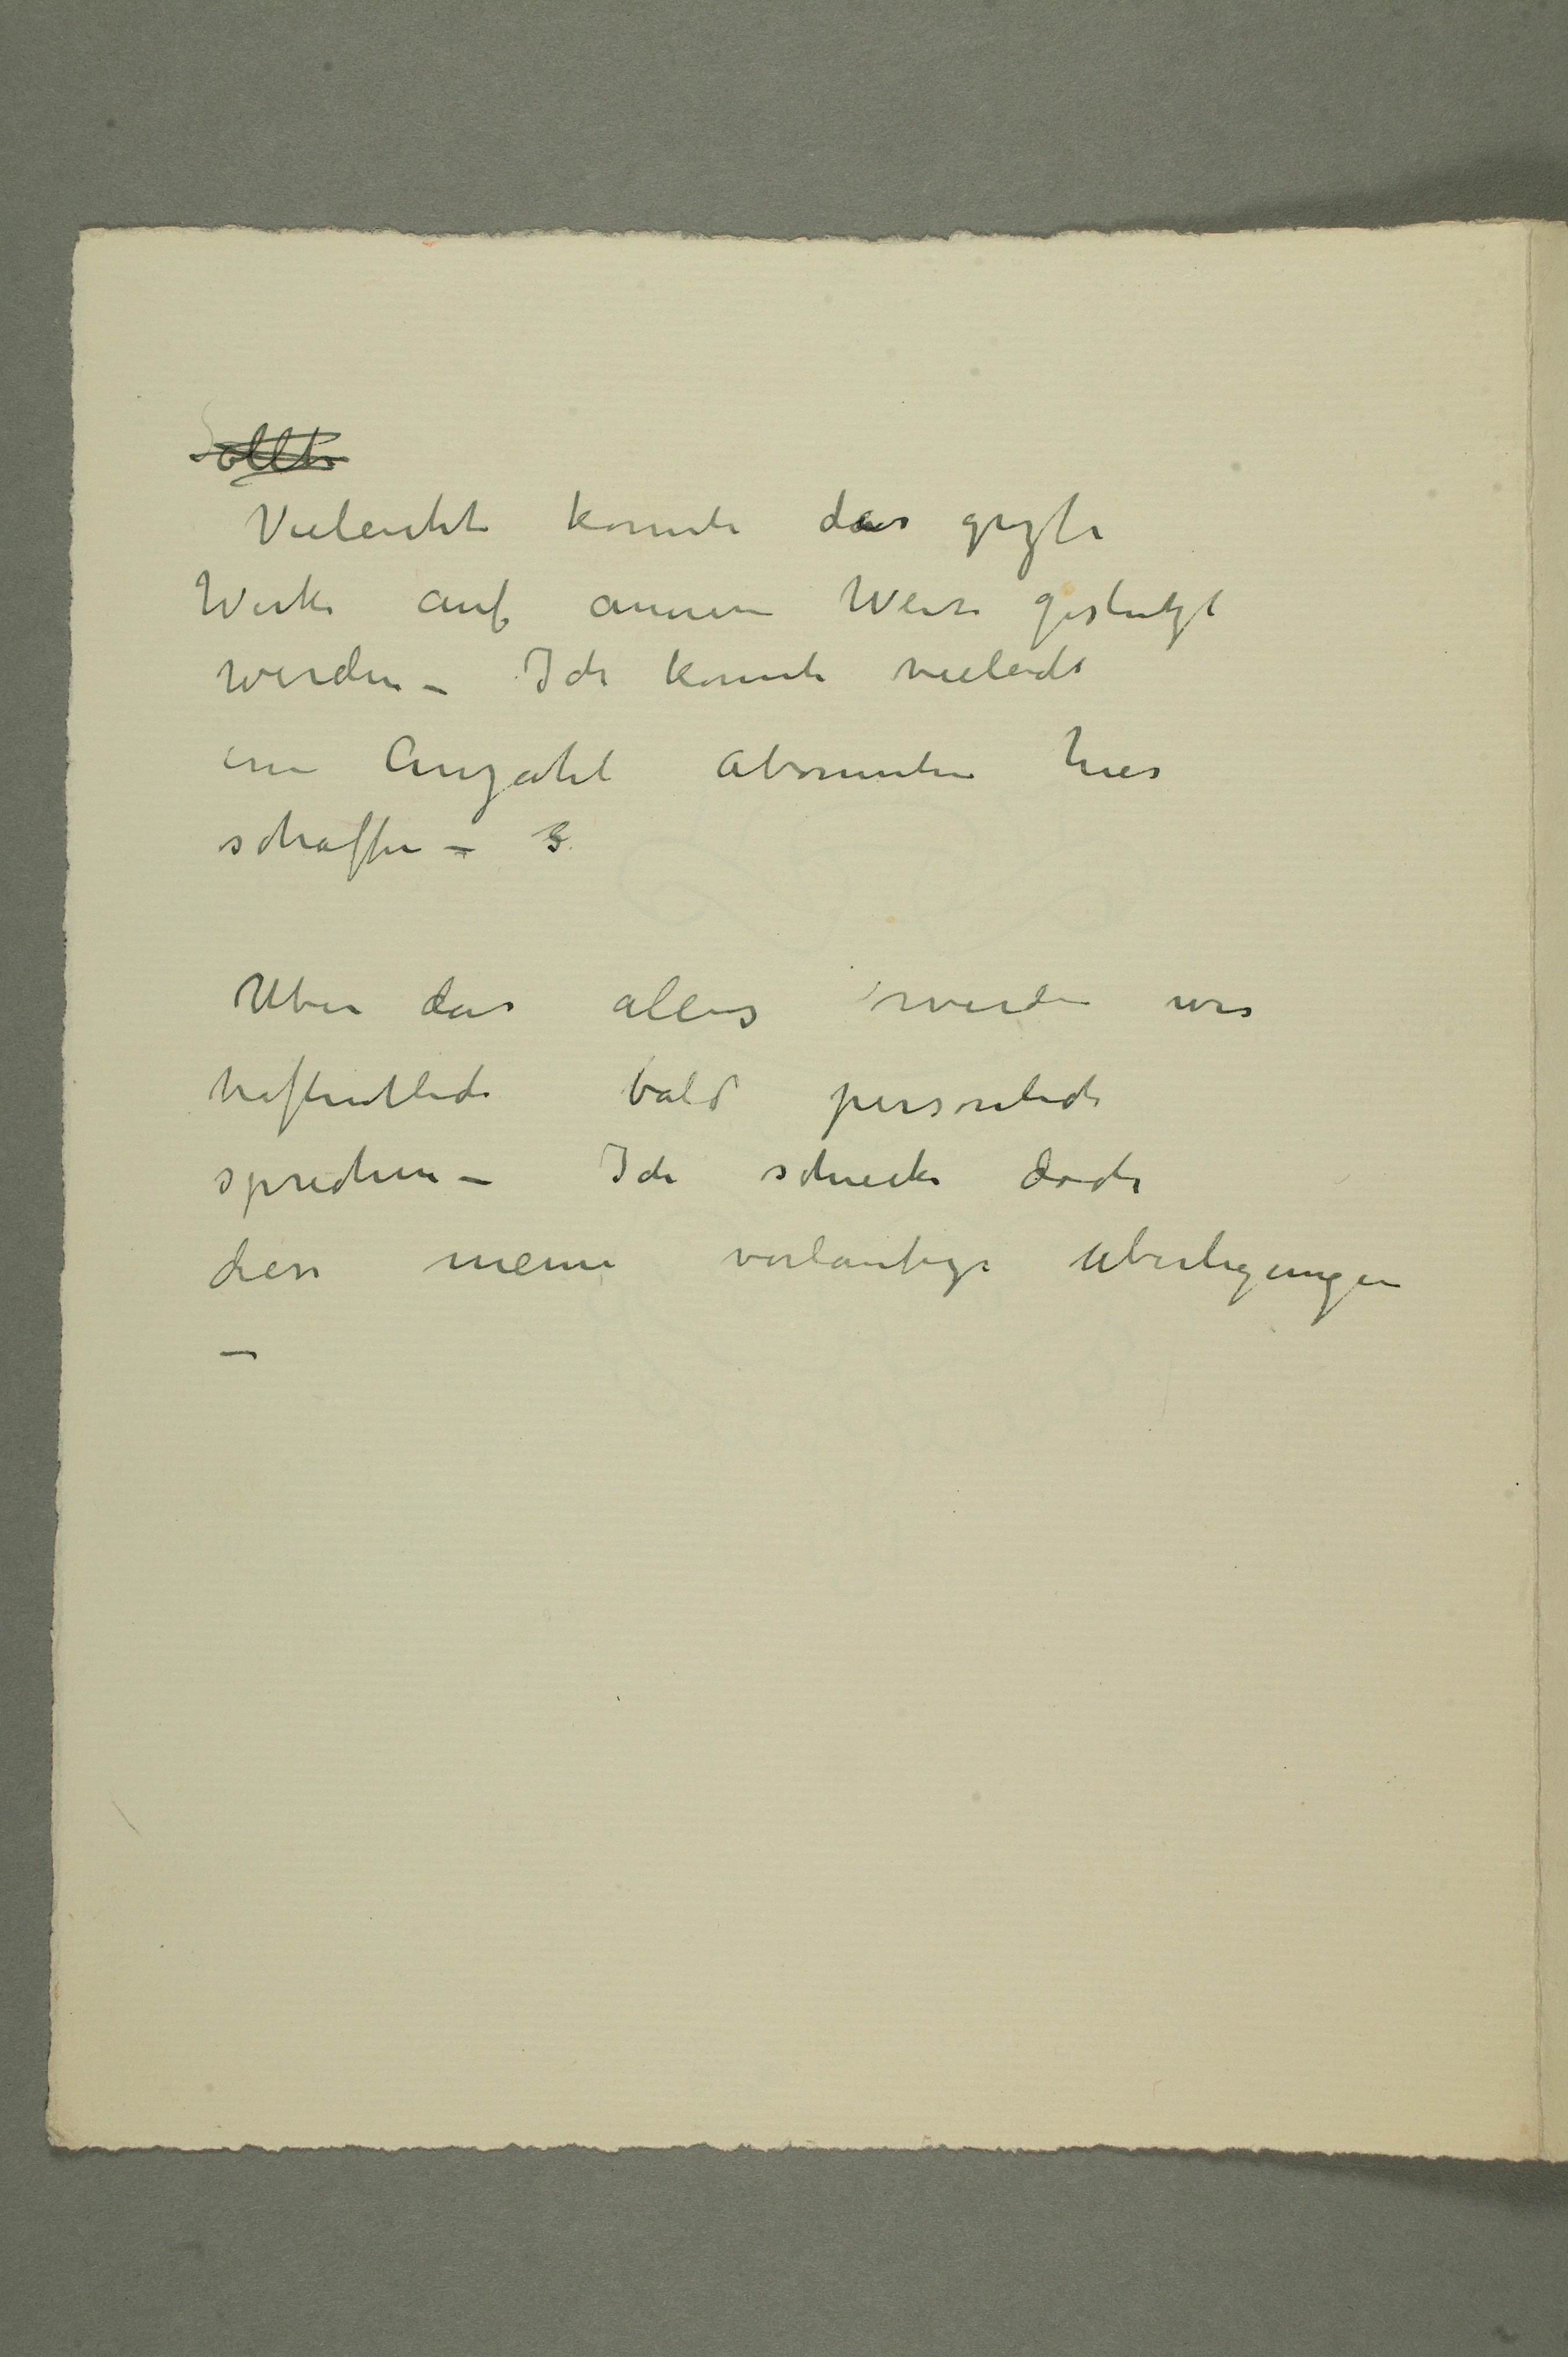 ~~Sollte~~
Vieleicht konnte das
Werke auf anderen Weise gestutzt
werden – Ich konnte vieleicht
eine Anzahl Abonnenten hier
schaffen –
Uber das alles werden wir
hoffentlich bald personlich
sprechen – Ich schicke doch
diese meine vorlaufige Uberlegungen
–